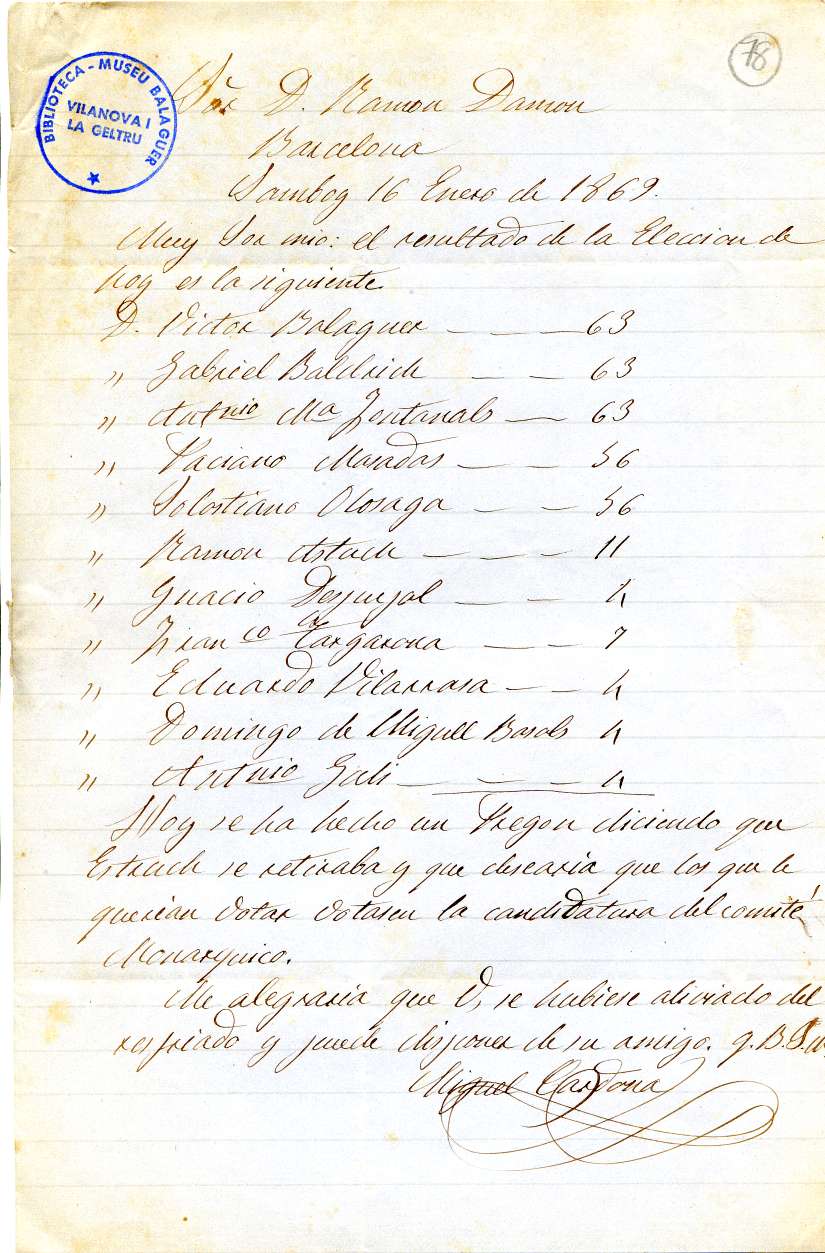 78
BIBLIOTECA - MUSEU BALAGUER
VILANOVA I
LA GELTRU
Sör D. Ramon Damon
Barcelona
Samboy 16 Enero de 1869.
Muy Sor mio: el resultado de la Eleccion de
hoy es la siguiente
D. Victor Balaguer — — — 63
„ Gabriel Baldrich — — 63
„ Antonio Ma Fontanals — 63
„ Paciano Masadas — — 56
„ Solostiano Olosaga — — 56
„ Ramon — — 11
„ Gnacio Despujol — — 4
„ Franco Targarona — — 7
„ Eduardo Vilarrasa — — 4
„ Domingo de Miguell Basols 4
„ Antonio Gali — — — 4
Hoy se ha hecho un Pregon diciendo que
Estruch se retiraba y que desearia que los que le
querian votar votasen la candidatura del comité
Monarquico.
Me alegraria que V, se hubiese aliviado del
resfriado y puede disponer de su amigo. q. B. S. M.
Miguel Cardona